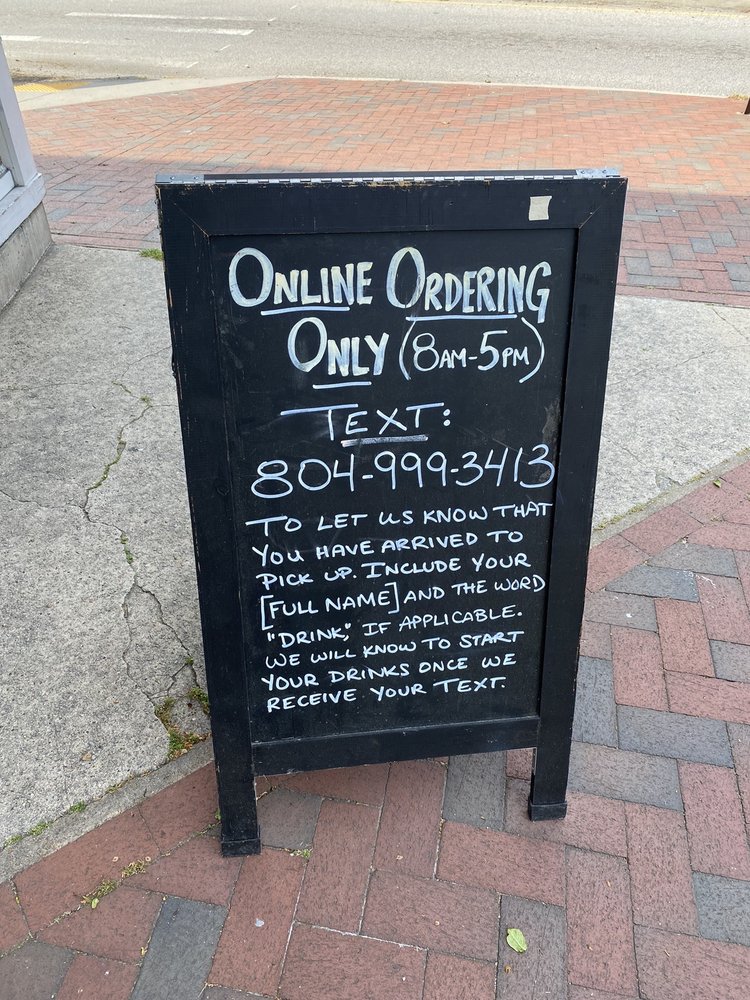 ONLINE ORDERING
ONLY (8AM-5PM)
TEXT:
804-999-3413
TO LET US KNOW THAT
YOU HAVE ARRIVED TO
PICK UP. INCLUDE YOUR
[FULL NAME] AND THE WORD
"DRINK," IF APPLICABLE.
WE WILL KNOW TO START
YOUR DRINKS ONCE WE
RECEIVE YOUR TEXT.